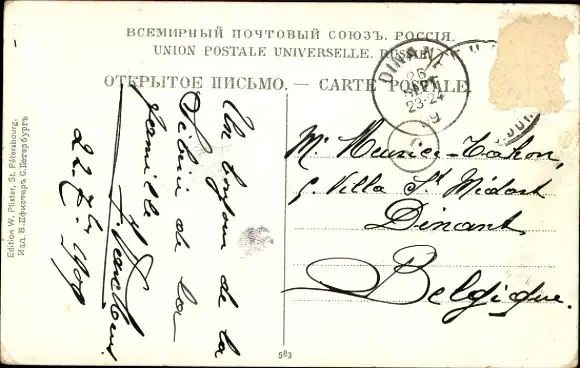 ВСЕМІРНЫЙ ПОЧТОВЫЙ СОЮЗЪ. РОССІЯ.
UNION POSTALE UNIVERSELLE. RUSSIE.
ОТКРЫТОЕ ПИСЬМО. — CARTE POSTALE.
DINANT
26
SEPT
23-24
09
Un bonjour de la
de la
famille
22 7bre 1909
Mr
Villa St Médart
Dinant
Belgique.
Edition W. Pfister, St. Pétersbourg.
Изд. В. Пфистеръ С. Петербургъ
583